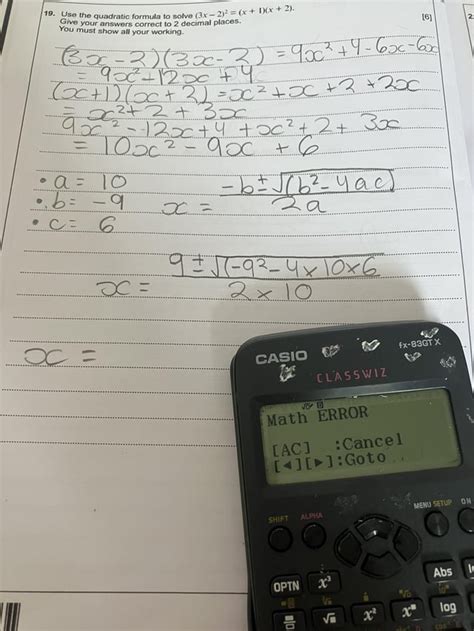 19. Use the quadratic formula to solve (3x − 2)² = (x + 1)(x + 2).
Give your answers correct to 2 decimal places.
You must show all your working.
[6]
(3x − 2)(3x − 2) = 9x² + 4 − 6x − 6x
= 9x² − 12x + 4
(x+1)(x+2) = x² + x + 2 + 2x
= x² + 2 + 3x
9x² − 12x + 4 + x² + 2 + 3x
= 10x² − 9x + 6
• a = 10
• b = −9
• c = 6
x = −b ± √(b² − 4ac) / 2a
x = 9 ± √(−9² − 4 × 10 × 6 / 2 × 10
x =
CASIO
fx-83GT X
CLASSWIZ
Math ERROR
[AC] :Cancel
[◄][►]:Goto
MENU SETUP ON
SHIFT ALPHA
OPTN x³
Abs
√■ x² x■ log